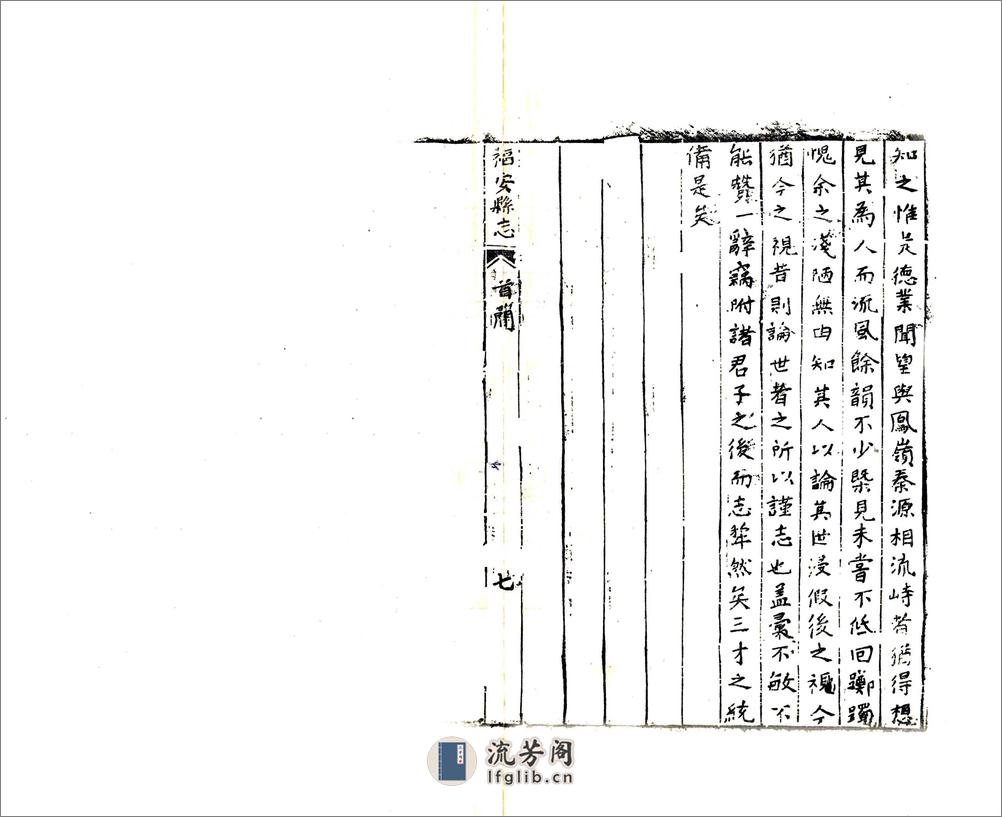 知之惟是德業聞望與鳳嶺秦源相流峙者猶得想
見其為人而流風餘韻不少槩見未嘗不低回躑躅
愧余之淺陋無由知其人以論其世浸假後之視今
猶今之視昔則論世者之所以謹志也盖彙不敏不
能贊一辭竊附諸君子之後而志犂然矣三才之統
備是矣
福安縣志 首簡 七
流芳阁
lfglib.cn